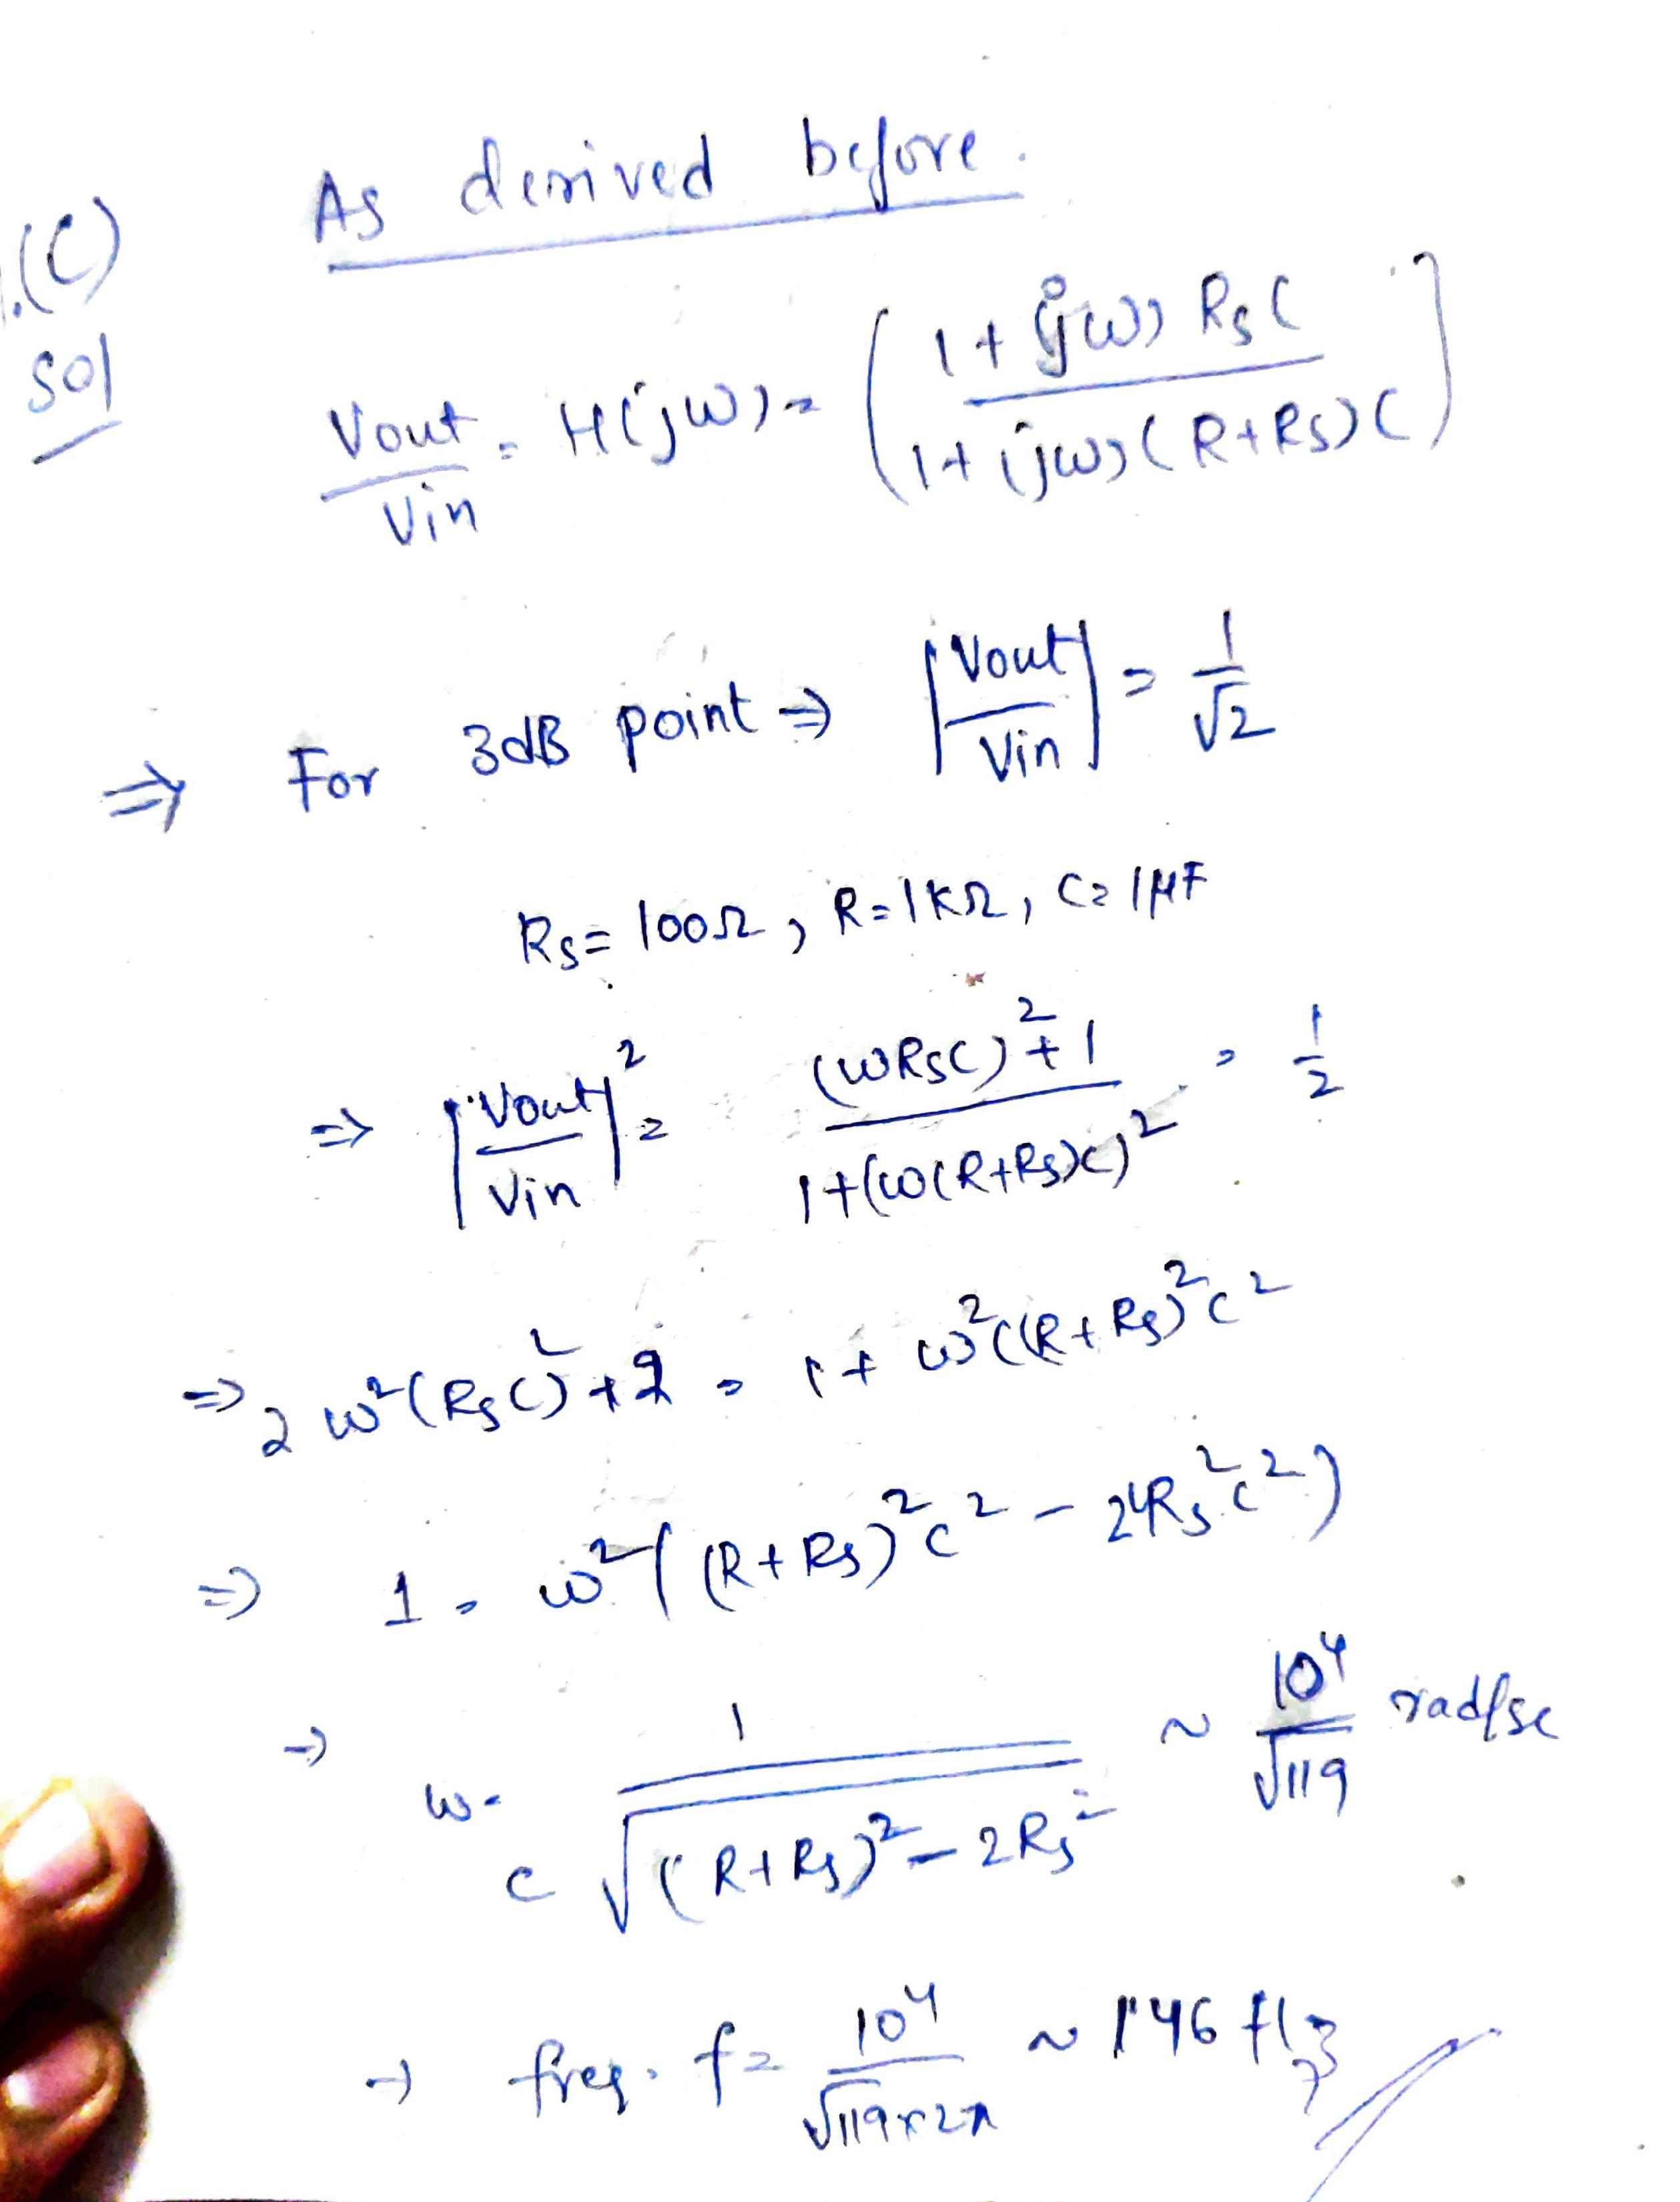 As derived before.
.(C)
Sol
Vout/Vin = H(jω) = ((1 + (jω) RsC)/(1 + (jω)(R+Rs)C))
⇒ For 3dB point ⇒ |Vout/Vin| = 1/√2
Rs = 100Ω, R = 1KΩ, C = 1μF
⇒ |Vout/Vin|² = ((ωRsC)² + 1)/(1 + (ω(R+Rs)C)²) = 1/2
⇒ 2ω²(RsC)² + 2 = 1 + ω²((R+Rs)²C²
⇒ 1 = ω²((R+Rs)²C² - 2Rs²C²)
→ ω = 1/(C√((R+Rs)² - 2Rs²)) ~ 10⁴/√119 rad/se
→ freq. f = 10⁴/(√119 × 2π) ~ 146 Hz